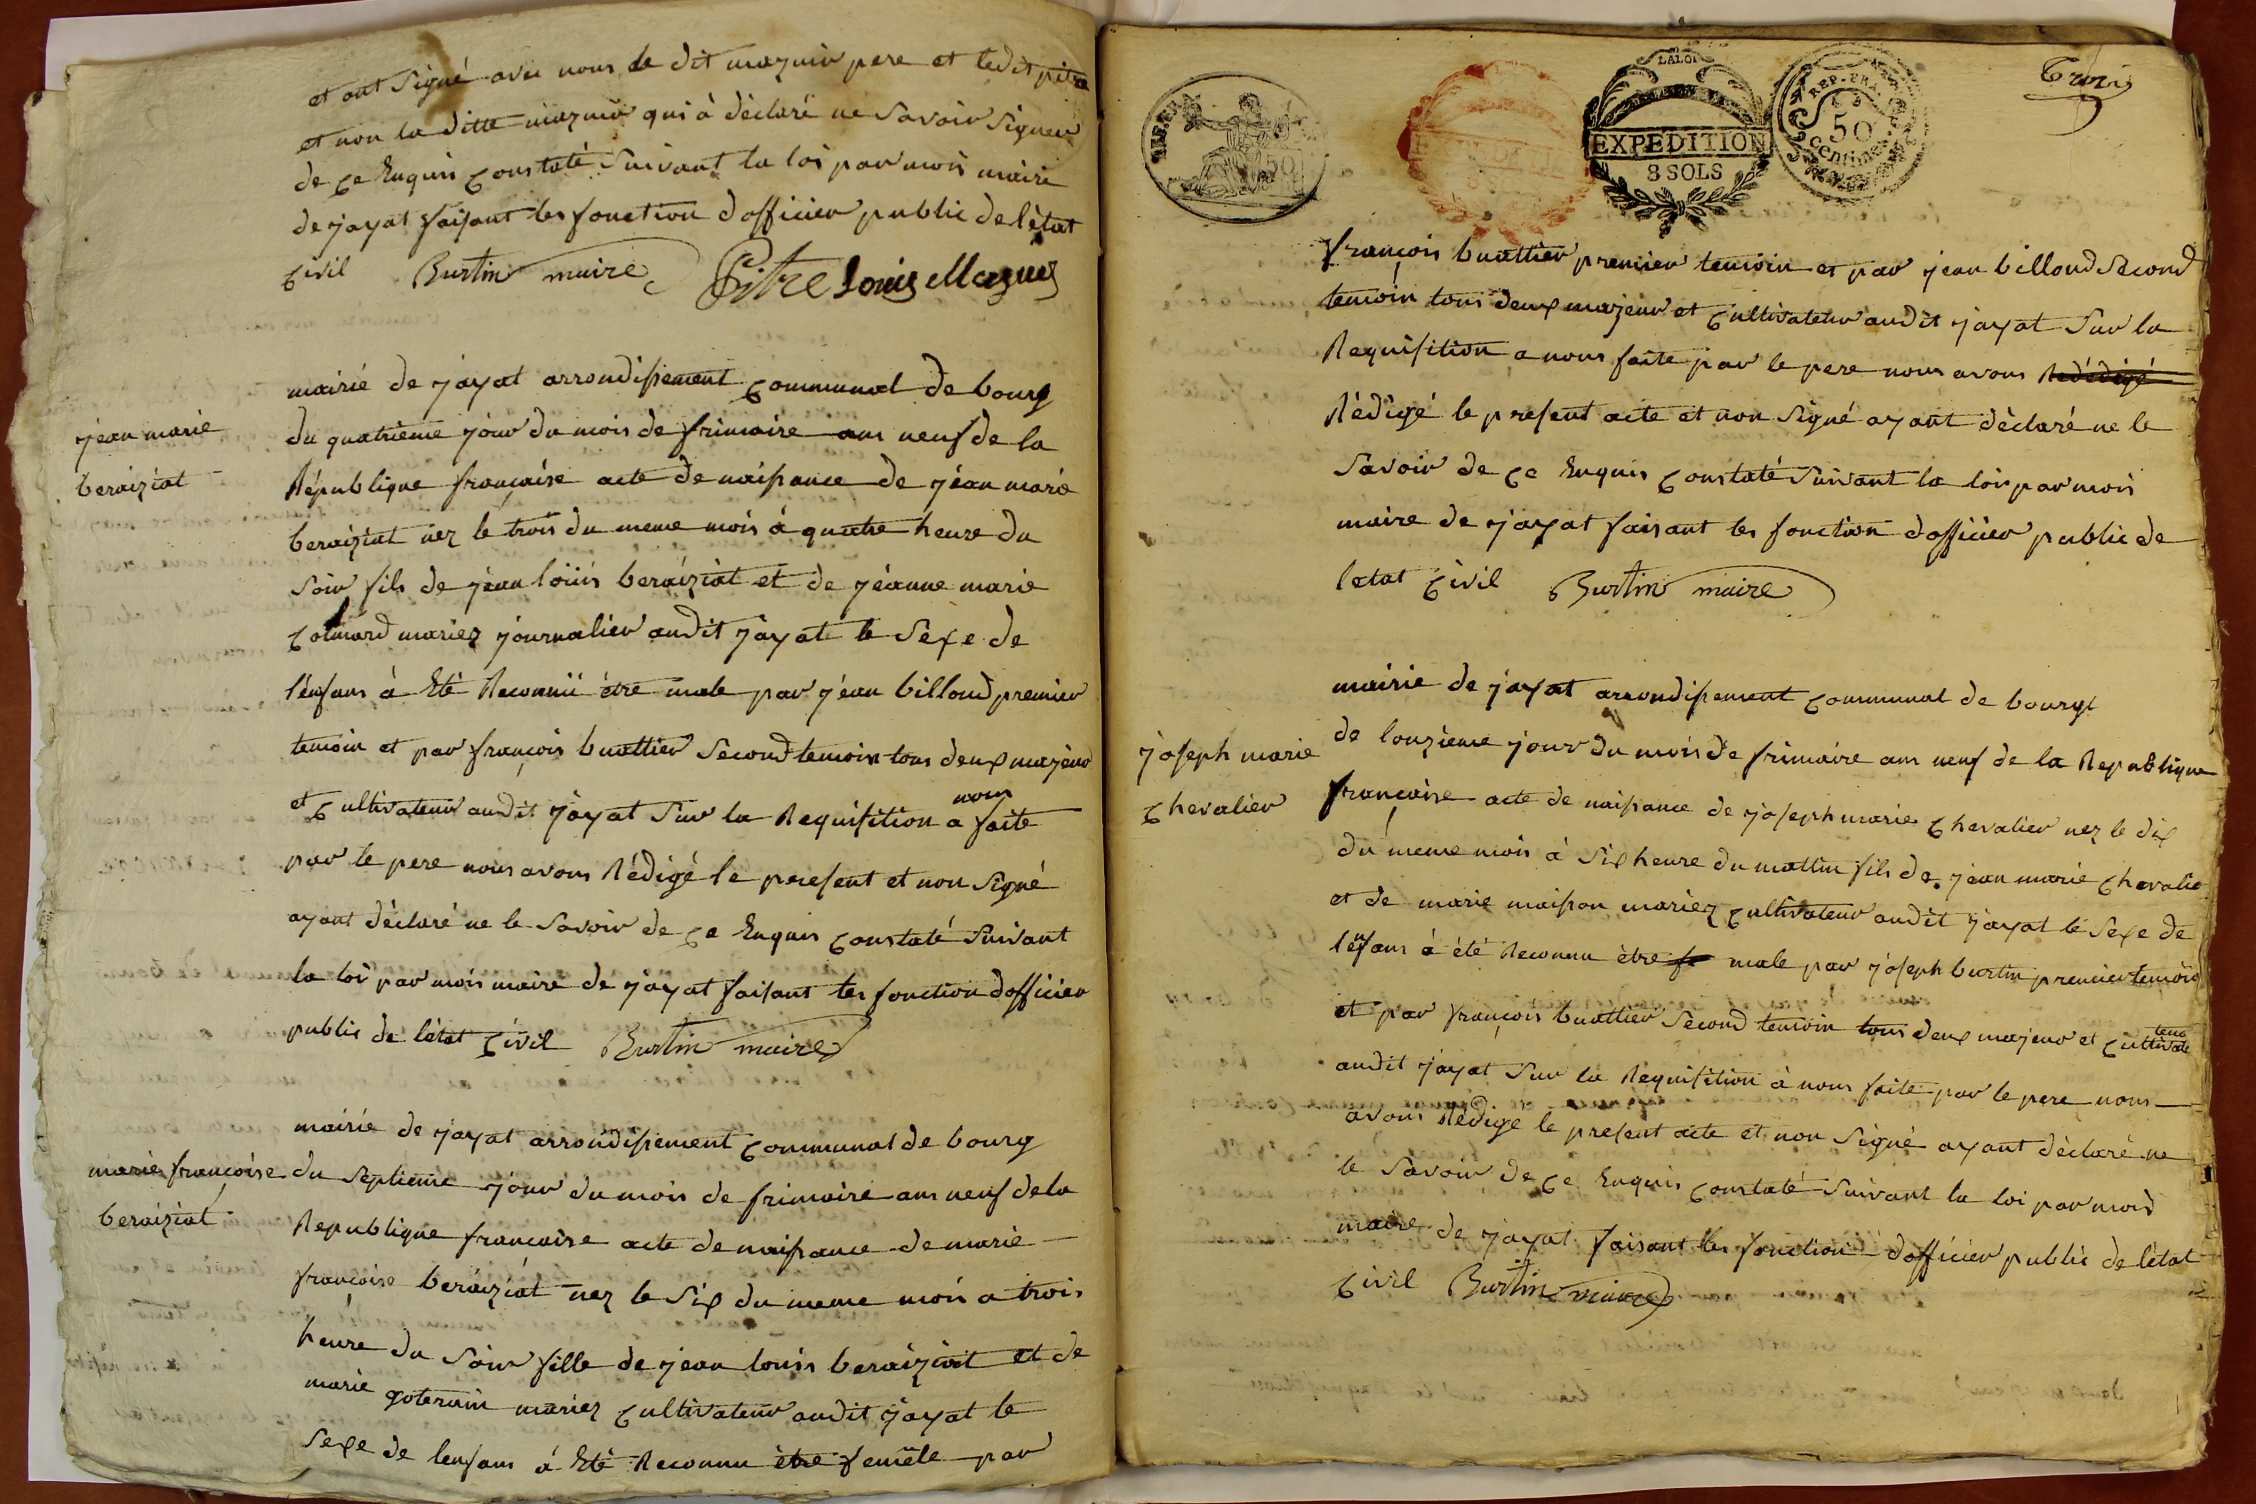 et ont signé avec nous le dit mazuir pere et ledit pitre
et non la ditte mazuir qui à dèclaré ne savoir signer
de ce Enquis constaté suivant la loi par mois maire
de jayat faisant les fonction dofficier public de lètat
civil Burtin maire Pitre Louis Mazuir
mairié de jayat arrondissement communal de bourg
jean marie
beraiziat
du quatrieme jour du mois de frimaire ans neuf de la
République française acte de naissance de jéan marie
beraiziat nez le trois du meme mois à quatre heure du
soir fils de jéan loüis beraiziat et de jéanne marie
colmard mariez journalier audit jayat le sexe de
lénfans à Eté Reconnü être male par jéan billoud premier
temoin et par françois buattier second temoin tous deux majeur
et cultivateur audit jayat sur la Requisition a nous faite
par le pere nous avons Rédigé le present et non signé
ayant dèclaré ne le savoir de ce Enquis constaté suivant
la loi par mois maire de jayat faisant les fonction dofficier
public de létat civil Burtin maire
mairié de jayat arrondissement communal de bourg
marie françoise
beraiziat
du septieme jour du mois de frimaire ans neuf de la
Republique françaíse acte de naissance de marie
françoise beraiziat nez le six du meme mois a trois
heure du soir fille de jean louis beraiziat et de
marie goterain mariez cultivateur audit jayat le
sexe de lenfans á Eté Reconnu être femèle par
LA LOI
REP. FRA.
50
centimes
EXPEDITION
8 SOLS
50
Trois
françois buattier premier temoin et par jean billoud second
temoin tous deux majeur et cultivateur audit jayat sur la
Requisition a nous faite par le pere nous avons Redédigé
Rèdigé le present acte et non signé ayant dèclaré ne le
savoir de ce Enquis constaté suivant la loi par mois
maire de jayat faisant les fonction dofficier public de
letat civil Burtin maire
mairie de jayat arrondissement communal de bourg
joseph marie
chevalier
de lonzieme jour du mois de frimaire ans neuf de la Republique
française acte de naissance de joseph marie chevalier nez le dix
du meme mois à six heure du mattin fils de jean marie chevalie
et de marie maisson mariez cultivateur audit jayat le sexe de
lenfans à été Reconnu être fe male par joseph burtin premier temoin
et par françois buattier second temoin tous deux majeur et cultivateur
audit jayat sur la Requisition à nous faite par le pere nous
avons Rédige le present acte et non signé ayant dèclaré ne
le savoir de ce Enquis constaté suivant la loi par mois
maire de jayat faisant les fonction dofficier public de létat
civil Burtin maire